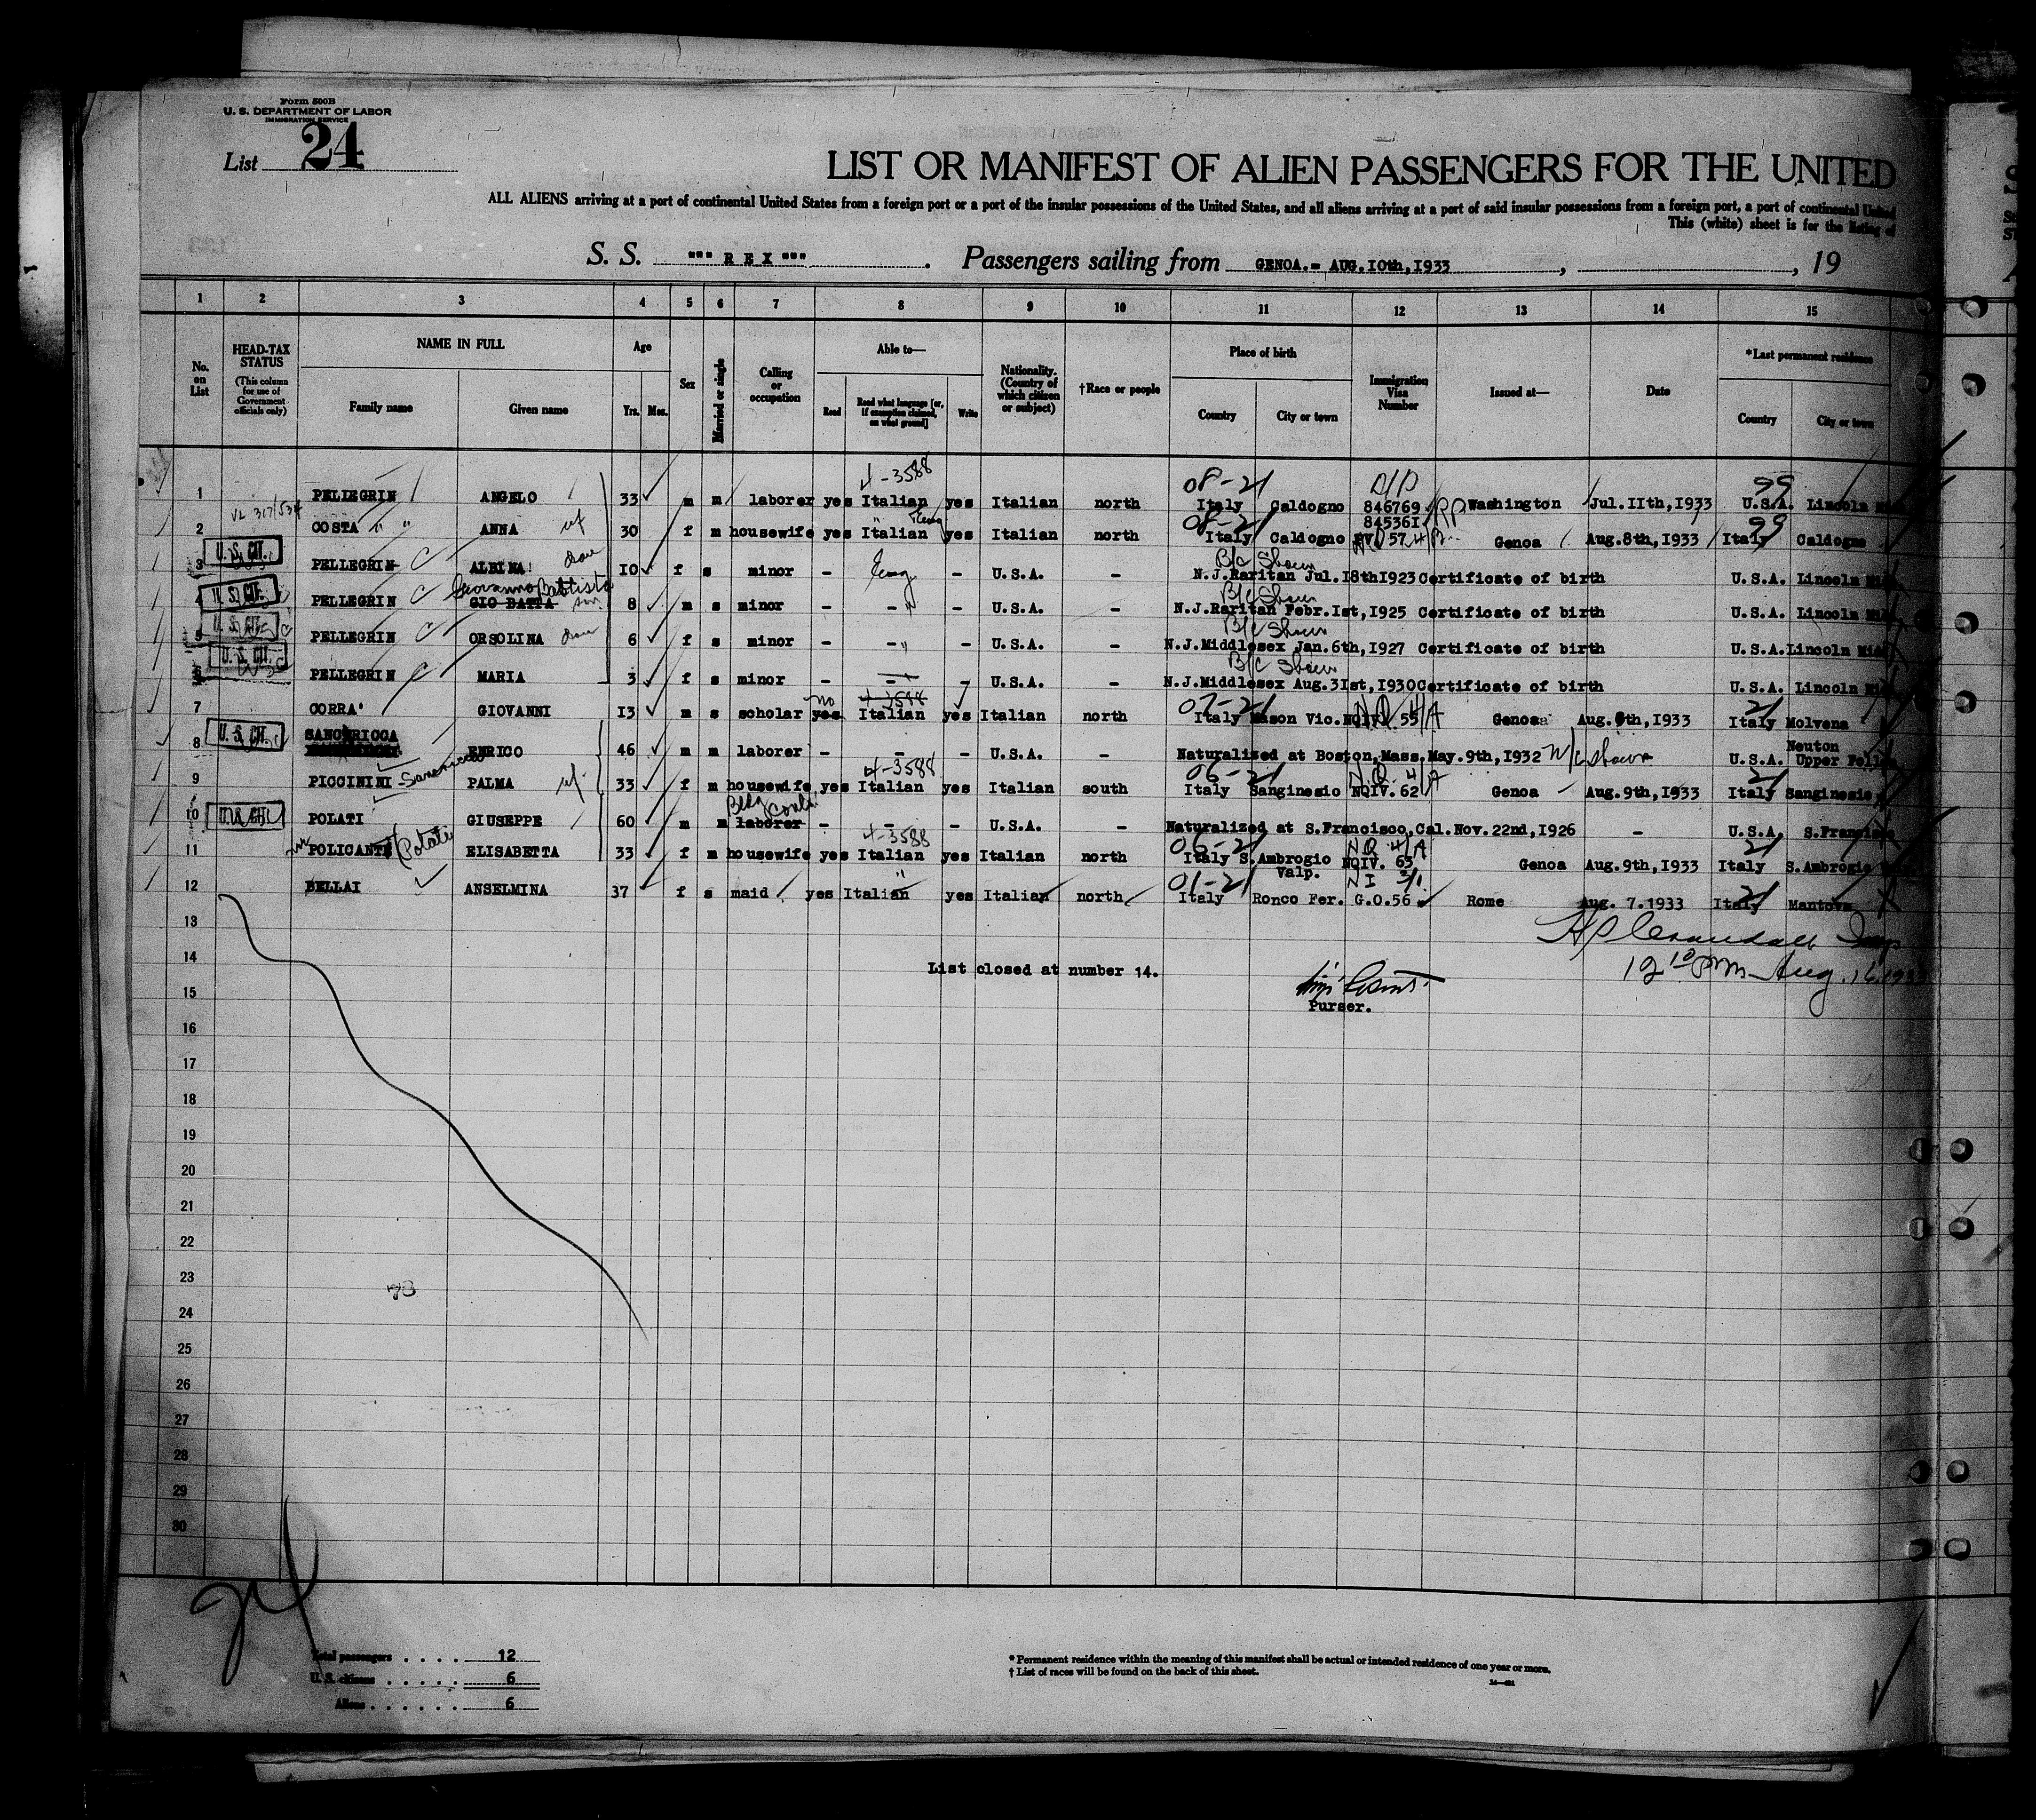 Form 500B
U. S. DEPARTMENT OF LABOR
IMMIGRATION SERVICE
List 24
LIST OR MANIFEST OF ALIEN PASSENGERS FOR THE UNITED
ALL ALIENS arriving at a port of continental United States from a foreign port or a port of the insular possessions of the United States, and all aliens arriving at a port of said insular possessions from a foreign port, a port of continental United
This (white) sheet is for the listing of
S. S. """ R E X """ . Passengers sailing from GENOA.- AUG.10th,1933 , , 19
1 2 3 4 5 6 7 8 9 10 11 12 13 14 15
No. on List
HEAD-TAX STATUS (This column for use of Government officials only)
NAME IN FULL
Family name Given name
Age
Yrs. Mos.
Sex
Married or single
Calling or occupation
Able to—
Read Read what language [or, if exemption claimed, on what ground] Write
Nationality. (Country of which citizen or subject)
†Race or people
Place of birth
Country City or town
Immigration Visa Number
Issued at—
Date
*Last permanent residence
Country City or town
4-3588
08-21 99
1 PELLEGRIN ANGELO 33 m m laborer yes Italian yes Italian north Italy Caldogno 846769 Washington Jul.11th,1933 U.S.A. Lincoln
84536I
08-21 99
2 COSTA " " ANNA wf 30 f m housewife yes Italian yes Italian north Italy Caldogno 57 Genoa Aug.8th,1933 Italy Caldogno
U. S. CIT.
B/C Shown
3 PELLEGRIN ALBINA 10 f s minor - Eng - U.S.A. - N.J.Raritan Jul.18th1923 Certificate of birth U.S.A. Lincoln
U. S. CIT.
Giovanno Battista
B/C Shown
4 PELLEGRIN GIO BATTA son 8 m s minor - - " - U.S.A. - N.J.Raritan Febr.1st,1925 Certificate of birth U.S.A. Lincoln
U. S. CIT.
B/C Shown
5 PELLEGRIN ORSOLINA 6 f s minor - - " - U.S.A. - N.J.Middlesex Jan.6th,1927 Certificate of birth U.S.A. Lincoln
U. S. CIT.
B/C Shown
6 PELLEGRIN MARIA 3 f s minor - - - U.S.A. - N.J.Middlesex Aug.31st,1930 Certificate of birth U.S.A. Lincoln
no 4-3588 07-21 21
7 CORRA' GIOVANNI 13 m s scholar yes Italian yes Italian north Italy Mason Vic. NQIV. 55 Genoa Aug.9th,1933 Italy Molvena
U. S. CIT.
8 SANCRICCA ENRICO 46 m m laborer - - - U.S.A. - Naturalized at Boston,Mass.May.9th,1932 N/C Shown U.S.A. Neuton Upper
4-3588 06-21 N.Q. 4/A 21
9 PICCININI - Sancricca PALMA wf 33 f m housewife yes Italian yes Italian south Italy Sanginesio NQIV. 62 Genoa Aug.9th,1933 Italy Sanginesio
U. S. CIT.
10 POLATI GIUSEPPE 60 m m laborer - - - U.S.A. - Naturalized at S.Francisco,Cal.Nov.22nd,1926 - U.S.A. S.Francisco
4-3588 06-21 N.Q. 4/A 21
11 POLICANTE (Polati ELISABETTA 33 f m housewife yes Italian yes Italian north Italy S.Ambrogio Valp. NQIV. 63 Genoa Aug.9th,1933 Italy S.Ambrogio
01-21 N I 21
12 BELLAI ANSELMINA 37 f s maid yes Italian yes Italian north Italy Ronco Fer. G.O.56 Rome Aug. 7.1933 Italy Mantova
13
14
List closed at number 14.
12 10 PM Aug. 16. 1933
Purser.
15
16
17
18
19
20
21
22
23
24
25
26
27
28
29
30
Total passengers . . . . 12
U. S. citizens . . . . . 6
Aliens . . . . . . 6
* Permanent residence within the meaning of this manifest shall be actual or intended residence of one year or more.
† List of races will be found on the back of this sheet.